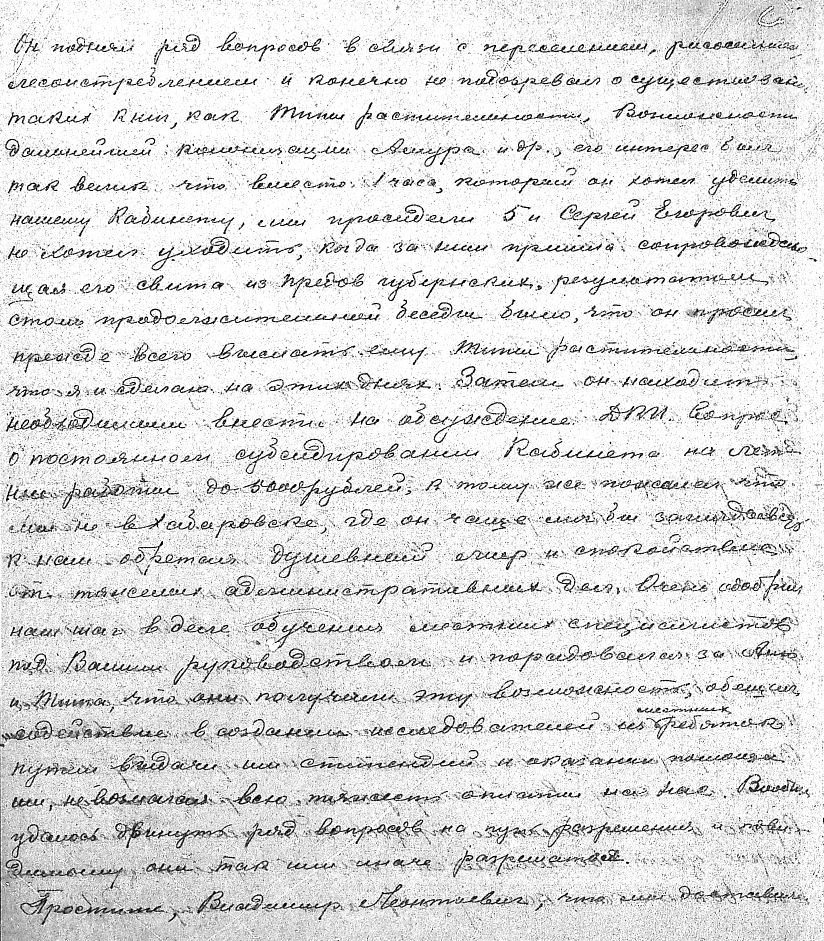 6
Он поднял ряд вопросов в связи с переселением, рисосеянием
лесоистреблением и конечно не подозревал о существовании
таких книг, как Типы растительности, Возможности
дальнейшей колонизации Амура и др., его интерес был
так велик что вместо 1 часа, который он хотел уделить
нашему Кабинету, мы просидели 5 и Сергей Егорович
не хотел уходить, когда за ним пришла сопровождаю-
щая его свита из предов губернских. результатом
столь продолжительной беседы было, что он просил
прежде всего выслать ему Типы растительности,
что я и сделаю на этих днях. Затем он находит
необходимым внести на обсуждение ДРИ. вопрос
о постоянном субсидировании Кабинета на лет-
ние работы до 5000 рублей, к тому же пожалел что
мы не в Хабаровске, где он чаще мог бы заглядывать
к нам обретая душевный мир и спокойствие
от тяжелых административных дел. Очень одобрил
наш шаг в деле обучения местных специалистов
под Вашим руководством и порадовался за
и Типа, что они получили эту возможность, обещал
содействие в создании исследователей из местных ребяток
путем выдачи им стипендий и оказании помощи
им, не возлагая всю тяжесть оплаты на нас. Вообще
удалось двинуть ряд вопросов на путь разрешения и пови-
димому они так или иначе разрешатся.
Простите, Владимир Леонтьевич, что мы доставили